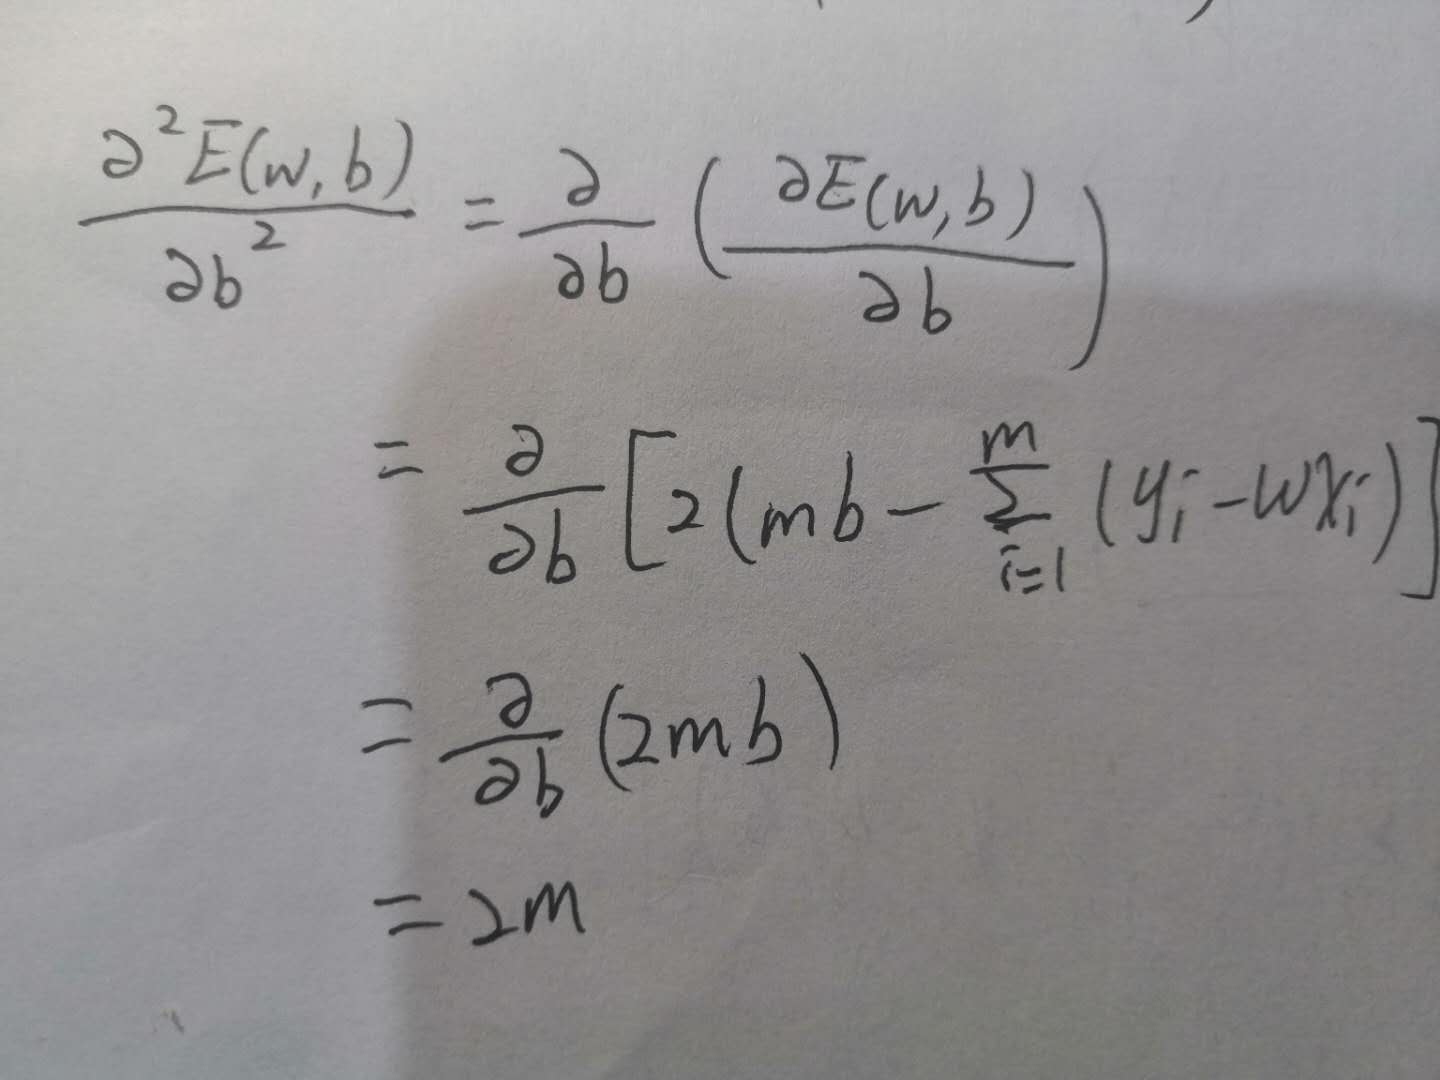 ∂²E(w,b)/∂b² = ∂/∂b (∂E(w,b)/∂b)
= ∂/∂b [2(mb - ∑_{i=1}^{m} (y_i - wx_i)]
= ∂/∂b (2mb)
= 2m